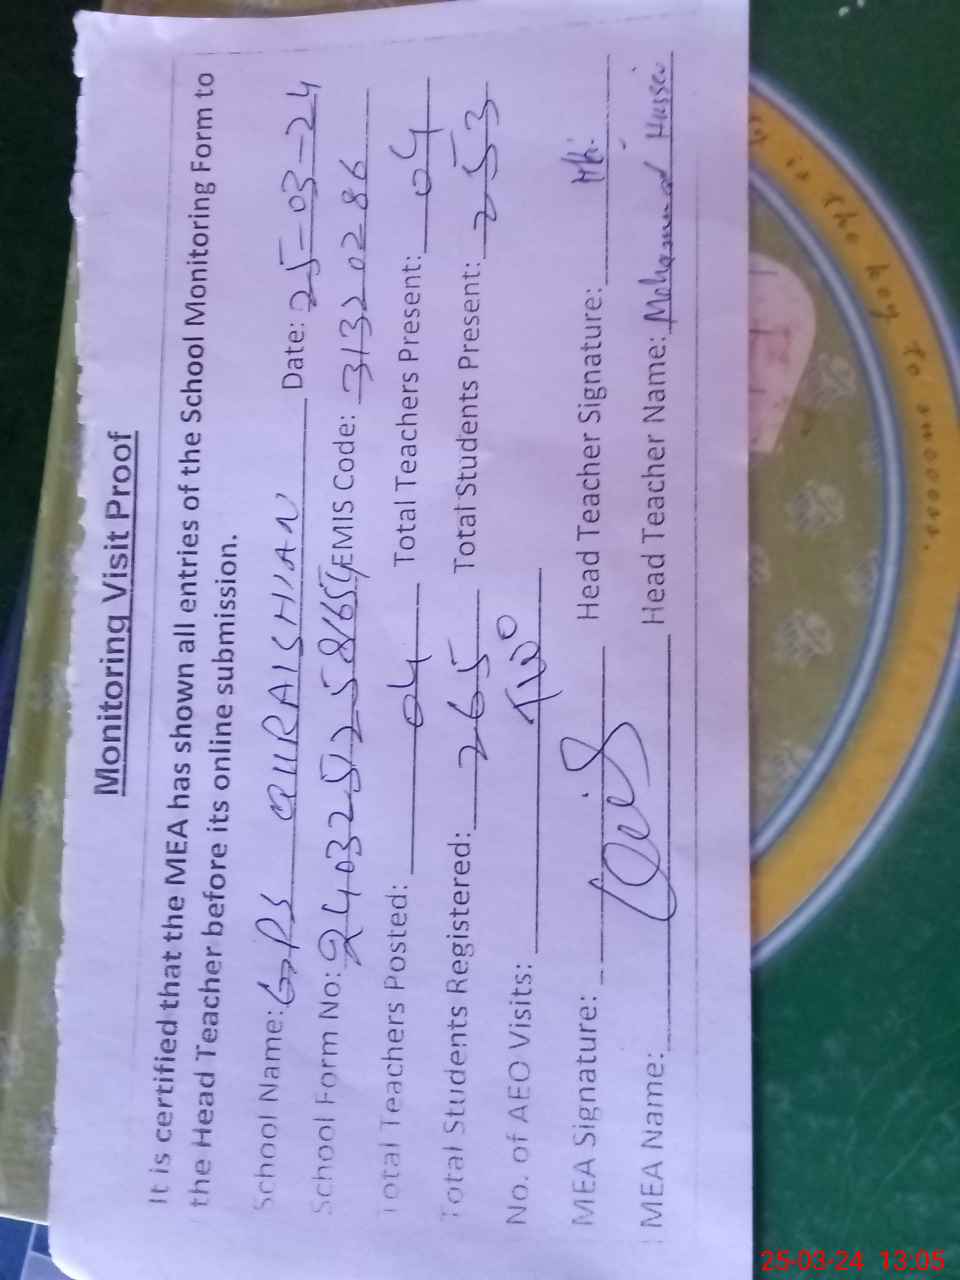 Monitoring Visit Proof
It is certified that the MEA has shown all entries of the School Monitoring Form to
the Head Teacher before its online submission.
School Name: GPS QURAISHIAN Date: 25-03-24
School Form No: 2403252581654 EMIS Code: 31320286
Total Teachers Posted: 04 Total Teachers Present: 04
Total Students Registered: 265 Total Students Present: 253
No. of AEO Visits: TWO
MEA Signature: Head Teacher Signature:
MEA Name: Head Teacher Name: Mohammad Hussain
is the key to success.
25-03-24 13:05